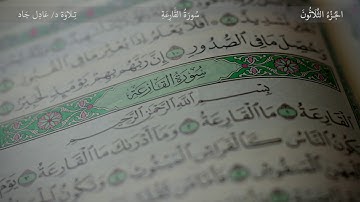 الجُزْءُ الثَّلَاثُونَ
سُورَةُ القَارِعَة
تِلَاوَة د/ عَادِل جَاد
وَحُصِّلَ مَا فِي ٱلصُّدُورِ ١٠ إِنَّ رَبَّهُم بِهِمْ يَوْمَئِذٍ لَّخَبِيرٌ
سُورَةُ القَارِعَةِ
بِسْمِ ٱللَّهِ ٱلرَّحْمَٰنِ ٱلرَّحِيمِ
ٱلْقَارِعَةُ ١ مَا ٱلْقَارِعَةُ ٢ وَمَآ أَدْرَىٰكَ مَا ٱلْقَارِعَةُ ٣ يَوْمَ
يَكُونُ ٱلنَّاسُ كَٱلْفَرَاشِ ٱلْمَبْثُوثِ ٤ وَتَكُونُ ٱلْجِبَالُ